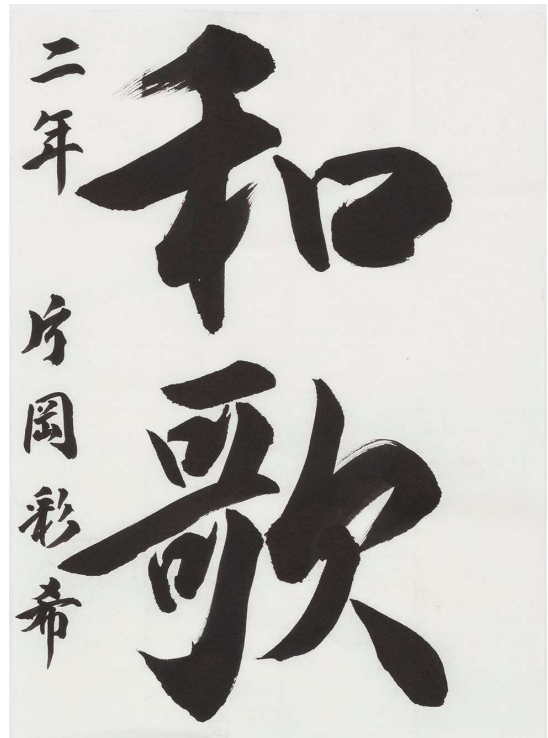 和歌
二年 片岡彩希